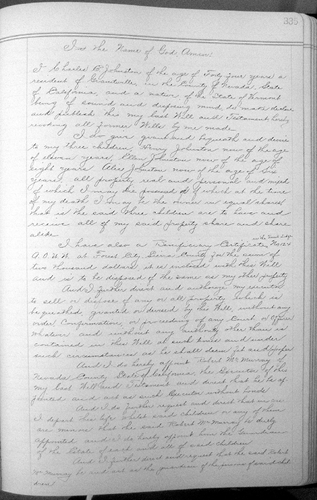 335
In the Name of God, Amen.
I, Charles Johnston of the age of Forty five years a
resident of Grantville in the County of Nevada State
of California, and a native of the State of Vermont
being of sound and disposing mind, do make declare
and publish this my last Will and Testament hereby
revoking all former Wills by me made.
I do give, grant and bequeath and devise
to my three children, Henry Johnston now of the age
of eleven years, Ellen Johnston now of the age of
eight years Alice Johnston now of the age of two
years, all property real and personal and mixed
of which I may die possessed of or which at the time
of my death I may be the owner in equal shares
that is the said three children are to have and
receive all of my said property share and share
alike
I have also a Certificate
A.O.U.W. at Forest City Sierra County for the sum of
two thousand dollars is
and is to be disposed of the same as my other property
And I further direct and authorize my executor
to sell or dispose of any or all property which is
bequeathed, granted or devised by this Will, without any
order Confirmation, or proceeding of any Court or Officer
whatever and without any authority other than is
contained in this Will at such times and under
such circumstances as he shall deem fit and proper
And I do hereby appoint Robert McMurray of
Nevada County State of California the Executor of this
my last Will and Testament and direct that he be
and act as such Executor without bonds
And I do further request and direct that in case
I depart this life whilst said children or any of them
are minors that the said Robert McMurray be duly
appointed and I do hereby appoint him the Guardian
of the Estate of each and all of said children
And I further direct and request that the said Robert
McMurray be the guardian of the persons of said chil
dren